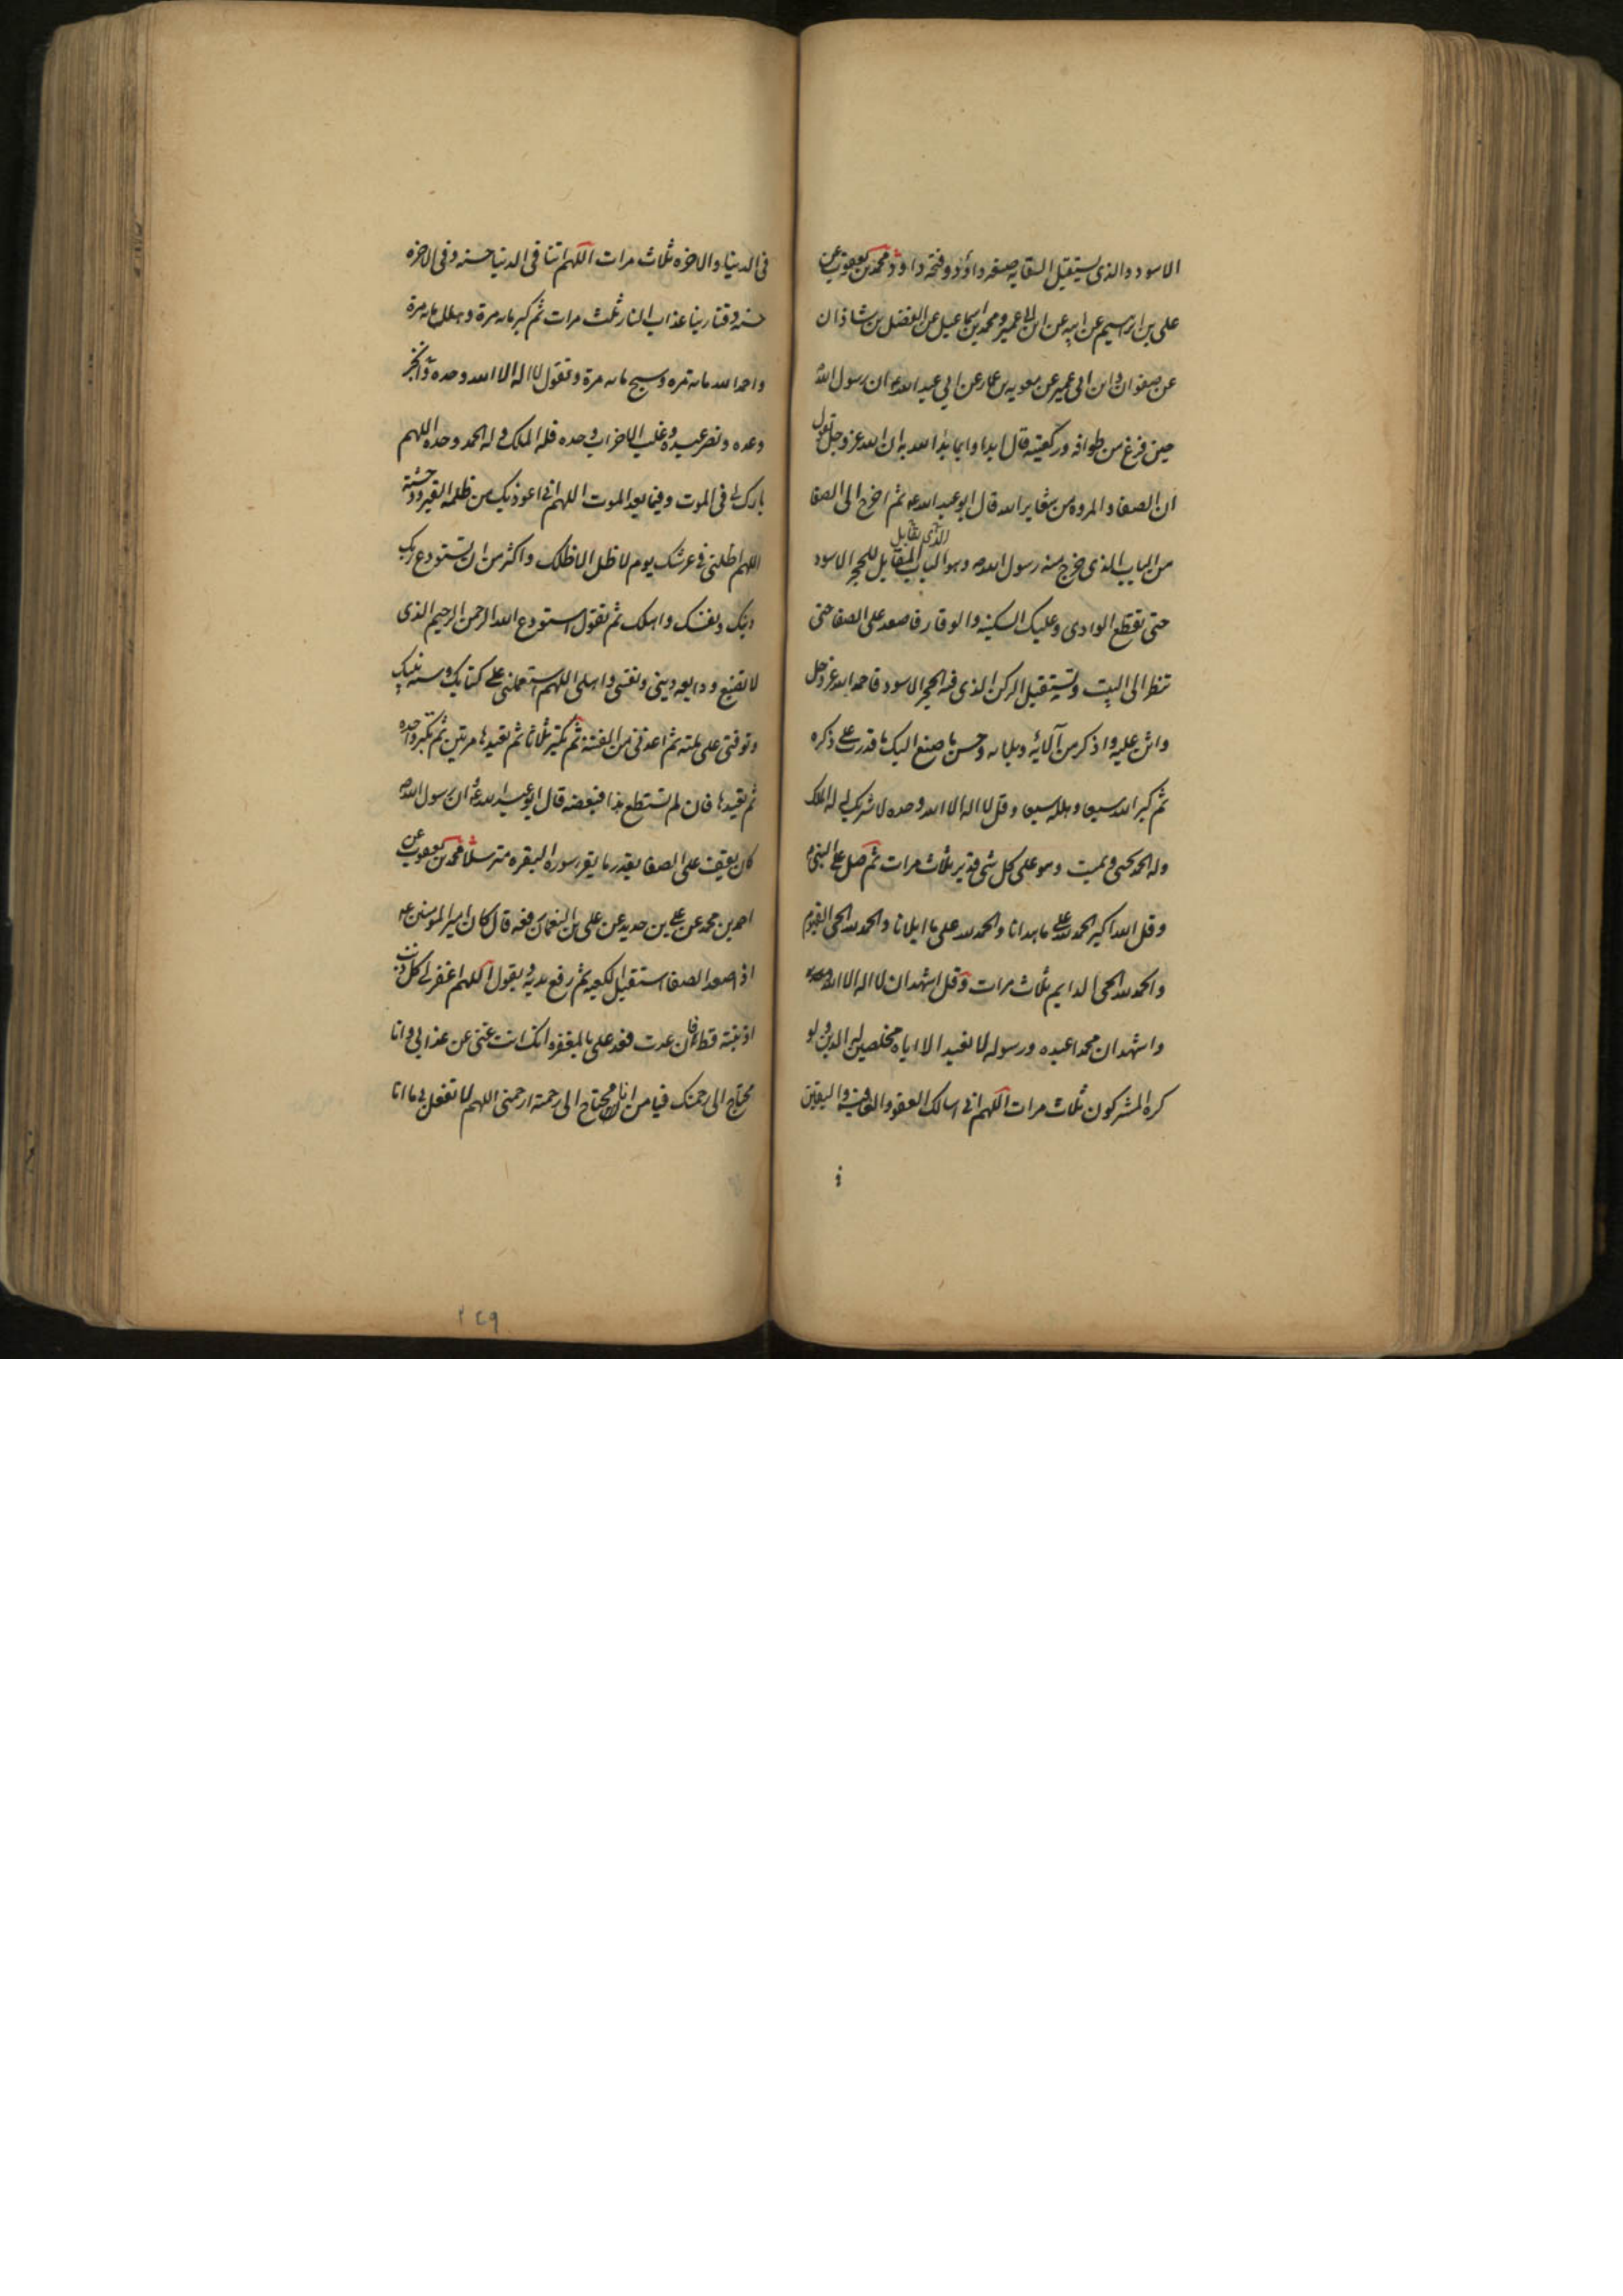 الاسود والذی یستقبل السقایه صنعه داود وفتحه داود محمد بن یعقوب عن
علی بن ابرهیم عن ابیه عن ابن ابی عمیر ومحمد بن اسماعیل عن الفضل بن شاذان
عن صفوان وابن ابی عمیر عن معویه بن عمار عن ابی عبد الله ع ان رسول الله
حین فرغ من طوافه ورکعتیه قال ابدا وابما بدا الله به ان الله عز وجل یقول
ان الصفا والمروه من شعایر الله قال ابو عبد الله ع ثم اخرج الی الصفا
الذی یقابل
من الباب الذی خرج منه رسول الله ص وهو الباب المقابل للحجر الاسود
حتی تقطع الوادی وعلیک السکینه والوقار فاصعد علی الصفا حتی
تنظر الی البیت وتستقبل الرکن الذی فیه الحجر الاسود فاحمد الله عز وجل
واثن علیه واذکر من آلائه وبلایه وحسن ما صنع الیک ما قدرت علی ذکره
ثم کبر الله سبعا وهلله سبعا وقل لا اله الا الله وحده لا شریک له له الملک
وله الحمد یحیی ویمیت وهو علی کل شی قدیر ثلاث مرات ثم صل علی النبی
وقل الله اکبر الحمد لله علی ما هدانا والحمد لله علی ما ابلانا والحمد لله الحی القیوم
والحمد لله الحی الدایم ثلاث مرات وقل اشهد ان لا اله الا الله
واشهد ان محمدا عبده ورسوله لا نعبد الا ایاه مخلصین له الدین ولو
کره المشرکون ثلاث مرات اللهم انی اسالک العفو والعافیه والیقین
فی
فی الدنیا والاخره ثلاث مرات اللهم اتنا فی الدنیا حسنه وفی الاخره
حسنه وقنا ربنا عذاب النار ثلث مرات ثم کبر مایه مرة وهلل مایه مرة
واحمد الله مایه مره وسبح مایه مرة وتقول لا اله الا الله وحده وحده انجز
وعده ونصر عبده وغلب الاحزاب وحده فله الملک وله الحمد وحده اللهم
بارک لی فی الموت وفیما بعد الموت اللهم انی اعوذ بک من ظلمه القبر ووحشته
اللهم اظلنی فی عرشک یوم لا ظل الا ظلک واکثر من ان تستودع ربک
دینک ونفسک واهلک ثم تقول استودع الله الرحمن الرحیم الذی
لا تضیع ودایعه دینی ونفسی واهلی اللهم استعملنی علی کتابک وسنه نبیک
وتوفنی علی ملته ثم اعذنی من الفتنه ثم تکبر ثلاثا ثم تعیدها مرتین ثم تکبر واحده
ثم تعیدها فان لم تستطع هذا فبعضه قال ابو عبد الله ع ان رسول الله ص
کان یقف علی الصفا بقدر ما یقرء سوره البقره مترسلا محمد بن یعقوب عن
احمد بن محمد عن علی بن حدید عن علی بن النعمان رفعه قال کان امیر المومنین ع
اذا صعد الصفا استقبل الکعبه ثم رفع یدیه ویقول اللهم اغفر لی کل ذنب
اذنبته قط فان عدت فعد علی بالمغفره انک انت غنی عن عذابی وانا
محتاج الی رحمتک فیا من انا محتاج الی رحمته ارحمنی اللهم لا تفعل بی ما انا
۲۴۹